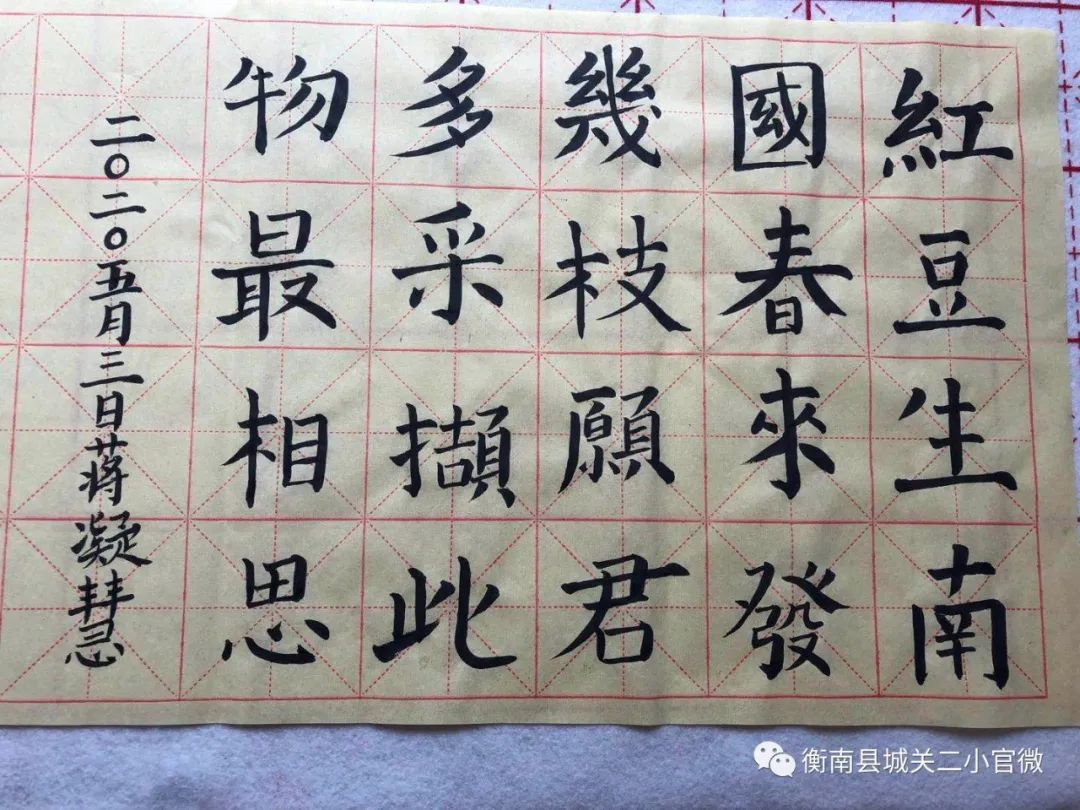 紅豆生南
國春來發
幾枝願君
多采擷此
物最相思
二〇二〇五月三日蒋凝慧
衡南县城关二小官微